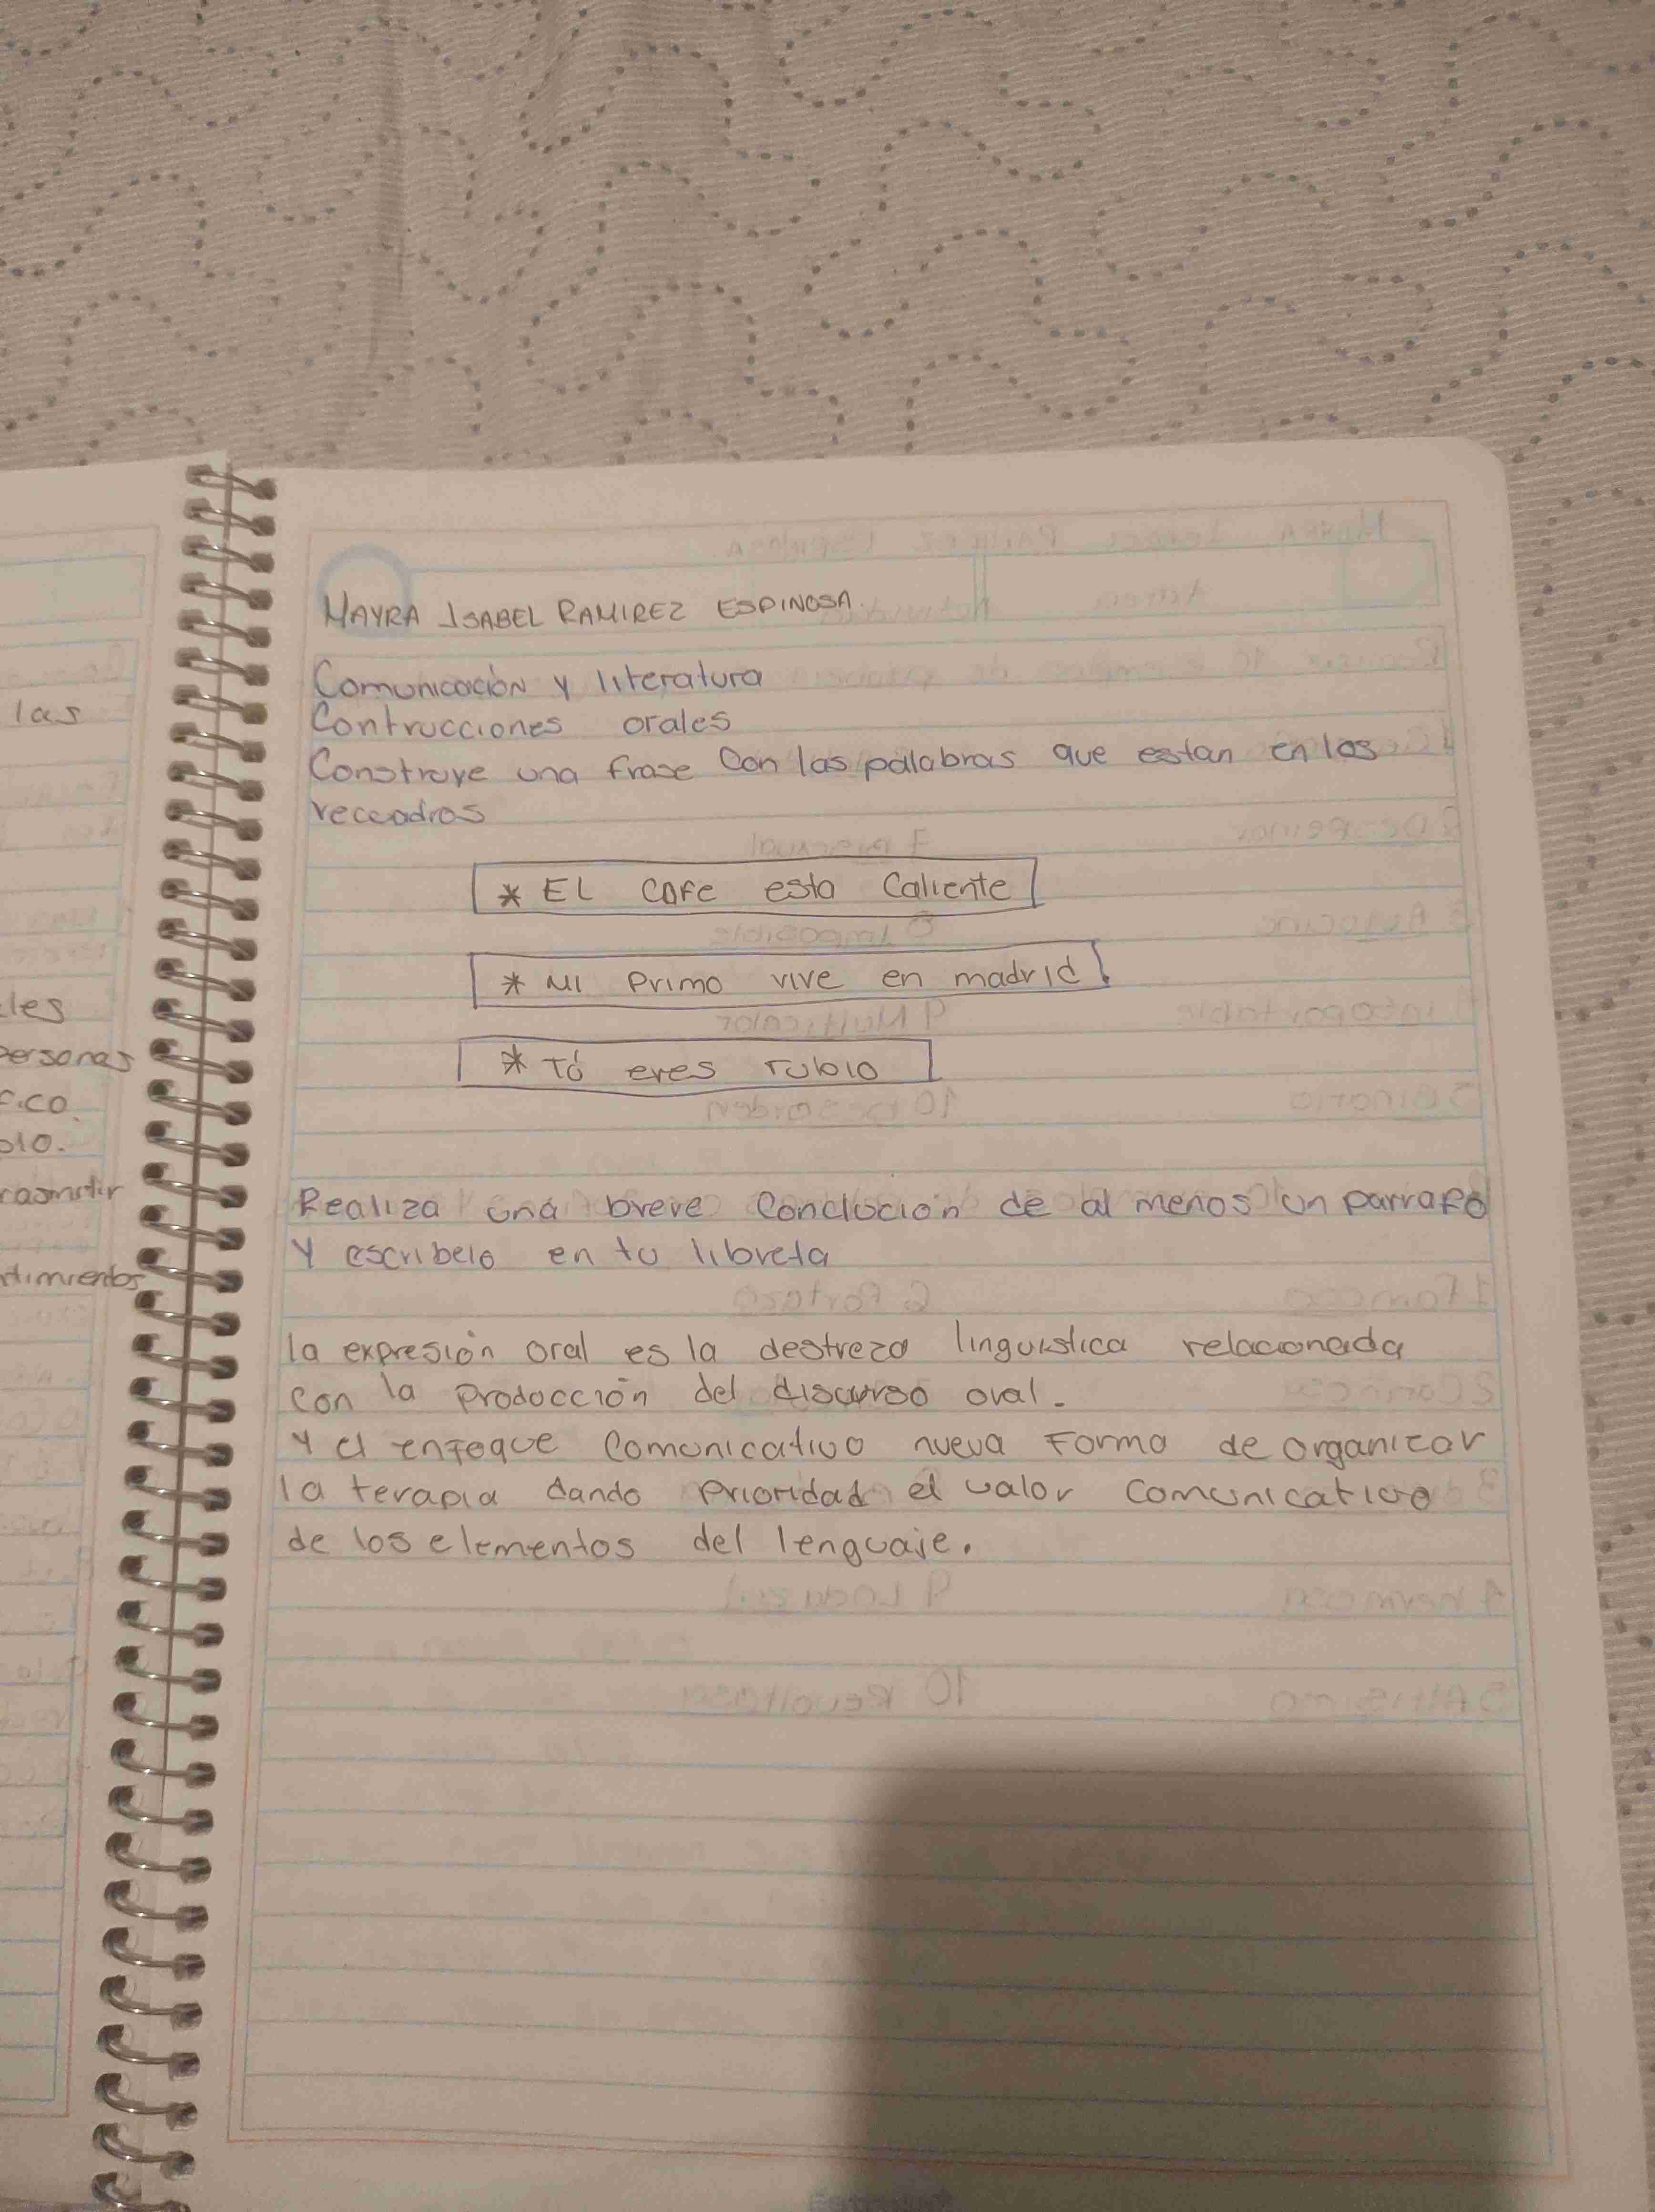 MAYRA ISABEL RAMIREZ ESPINOSA.
Comunicación y literatura
Contrucciones orales
Construye una frase con las palabras que estan en los
reccadros
* EL cafe esta caliente
* Mi Primo vive en madrid.
* Tú eres rubio
Realiza una breve Conclucion de al menos un parrafo
Y escribelo en tu libreta
la expresión oral es la destreza linguistica relacionada
con la Producción del discurso oral.
Y el enfoque comunicativo nueva forma de organizar
la terapia dando Prioridad el valor comunicativo
de los elementos del lenguaje.
las
les
personas
fico.
olo.
rasmitir